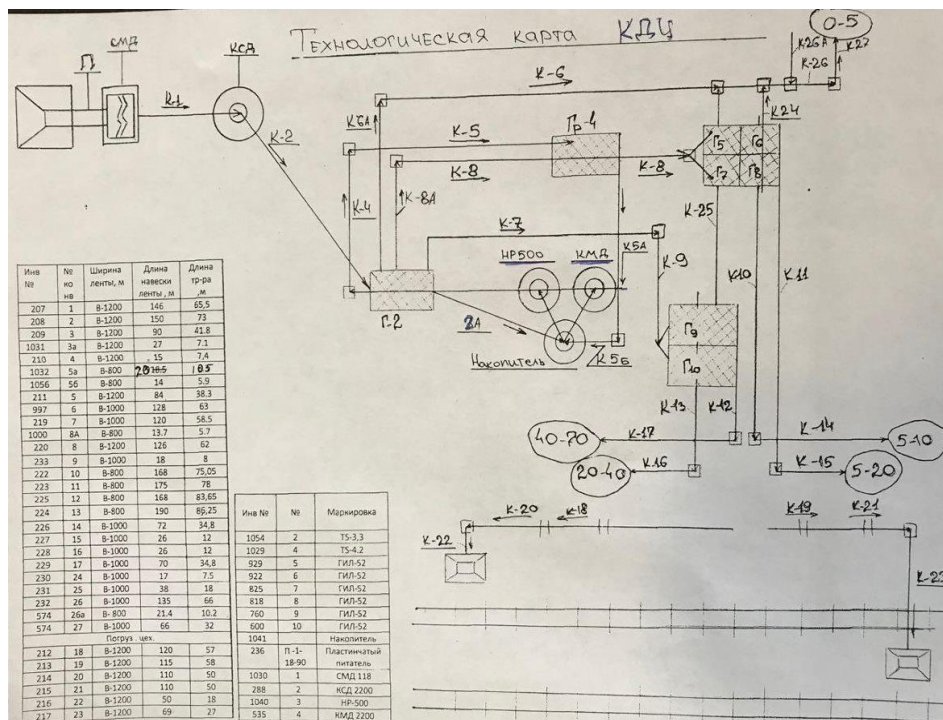 Технологическая карта КДЦ
О-5
К26А
К27
К-26
СМД
П
КСД
К-1
К-2
К-6
К6А
К-5
Гр-4
К24
Г5
Г6
Г7
Г8
К-8
К-8
К-8А
К-4
К-7
К-25
К5А
К-9
К10
К-11
НР500
КМД
Г-2
2А
Накопитель
К5Б
Г9
Г10
К-13
К-12
40-70
К-17
К-14
5-10
20-40
К16
К-15
5-20
К-20
К-18
К19
К-21
К-22
К-23
Инв № | № конв | Ширина ленты, м | Длина навески ленты, м | Длина тр-ра, м
207 1 В-1200 146 65,5
208 2 В-1200 150 73
209 3 В-1200 90 41.8
1031 3а В-1200 27 7.1
210 4 В-1200 15 7,4
1032 5а В-800 23 10.5
1056 5б В-800 14 5.9
211 5 В-1200 84 38.3
997 6 В-1000 128 63
219 7 В-1000 120 58.5
1000 8А В-800 13.7 5.7
220 8 В-1200 126 62
233 9 В-1000 18 8
222 10 В-800 168 75,05
223 11 В-800 175 78
225 12 В-800 168 83,65
224 13 В-800 190 86,25
226 14 В-1000 72 34,8
227 15 В-1000 26 12
228 16 В-1000 26 12
229 17 В-1000 70 34,8
230 24 В-1000 17 7.5
231 25 В-1000 38 18
232 26 В-1000 135 66
574 26а В- 800 21.4 10.2
574 27 В-1000 66 32
Погруз . цех.
212 18 В-1200 120 57
213 19 В-1200 115 58
214 20 В-1200 110 50
215 21 В-1200 110 50
216 22 В-1200 50 18
217 23 В-1200 69 27
Инв № | № | Маркировка
1054 2 TS-3,3
1029 4 TS-4.2
929 5 ГИЛ-52
922 6 ГИЛ-52
825 7 ГИЛ-52
818 8 ГИЛ-52
760 9 ГИЛ-52
600 10 ГИЛ-52
1041 Накопитель
236 П -1-18-90 Пластинчатый питатель
1030 1 СМД 118
288 2 КСД 2200
1040 3 НР-500
535 4 КМД 2200